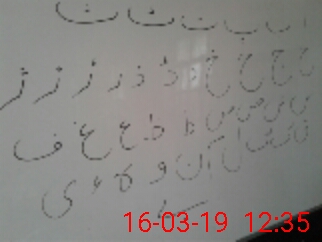 ا ب پ ت ٹ ث
ج چ ح خ د ڈ ذ ر ڑ ز ژ
س ش ص ض ط ظ ع غ ف
ق ک گ ل م ن و ہ ء ی
ے
16-03-19 12:35